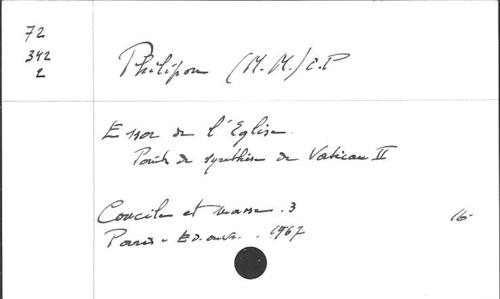 72
342
2
Philipon (M.M.) o.P
Essor de l'Eglise.
Points de synthèse de Vatican II
Concile et masse. 3
Paris - Ed. ouvr. . 1967
16-